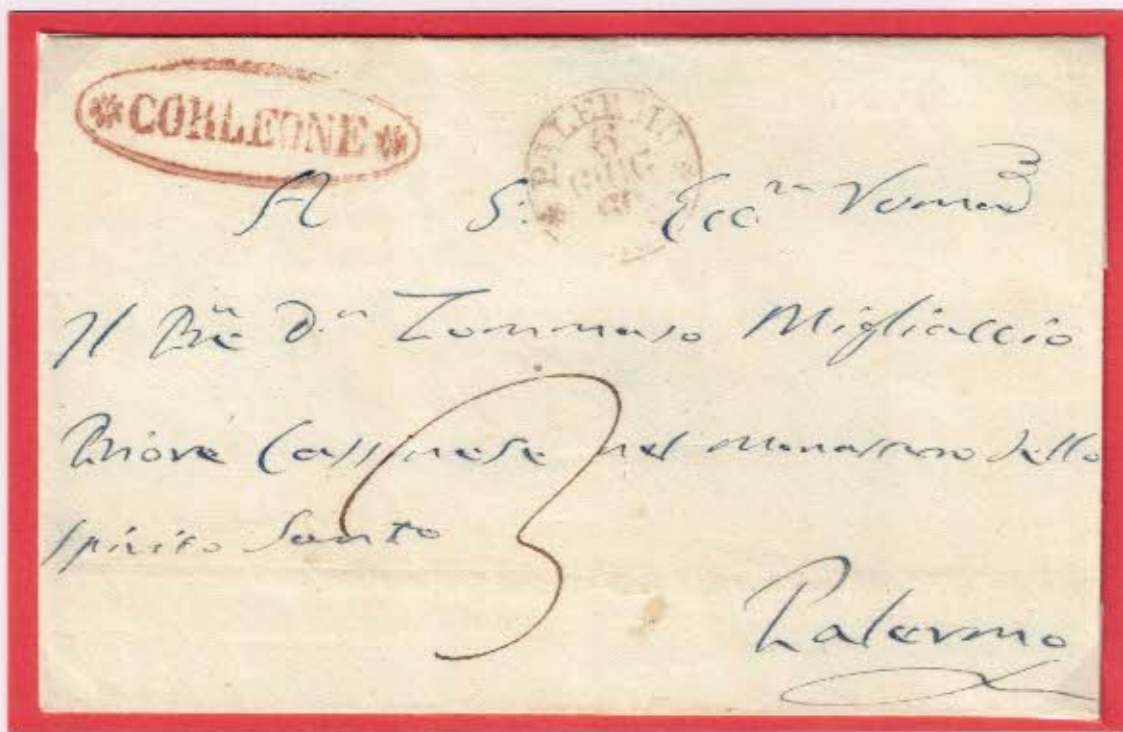 * CORLEONE *
* PALERMO *
GIUG
A S: Ecc.za
Il D.n Tommaso Migliaccio
Priore Cassinese nel Monastero dello
Spirito Santo
3
Palermo